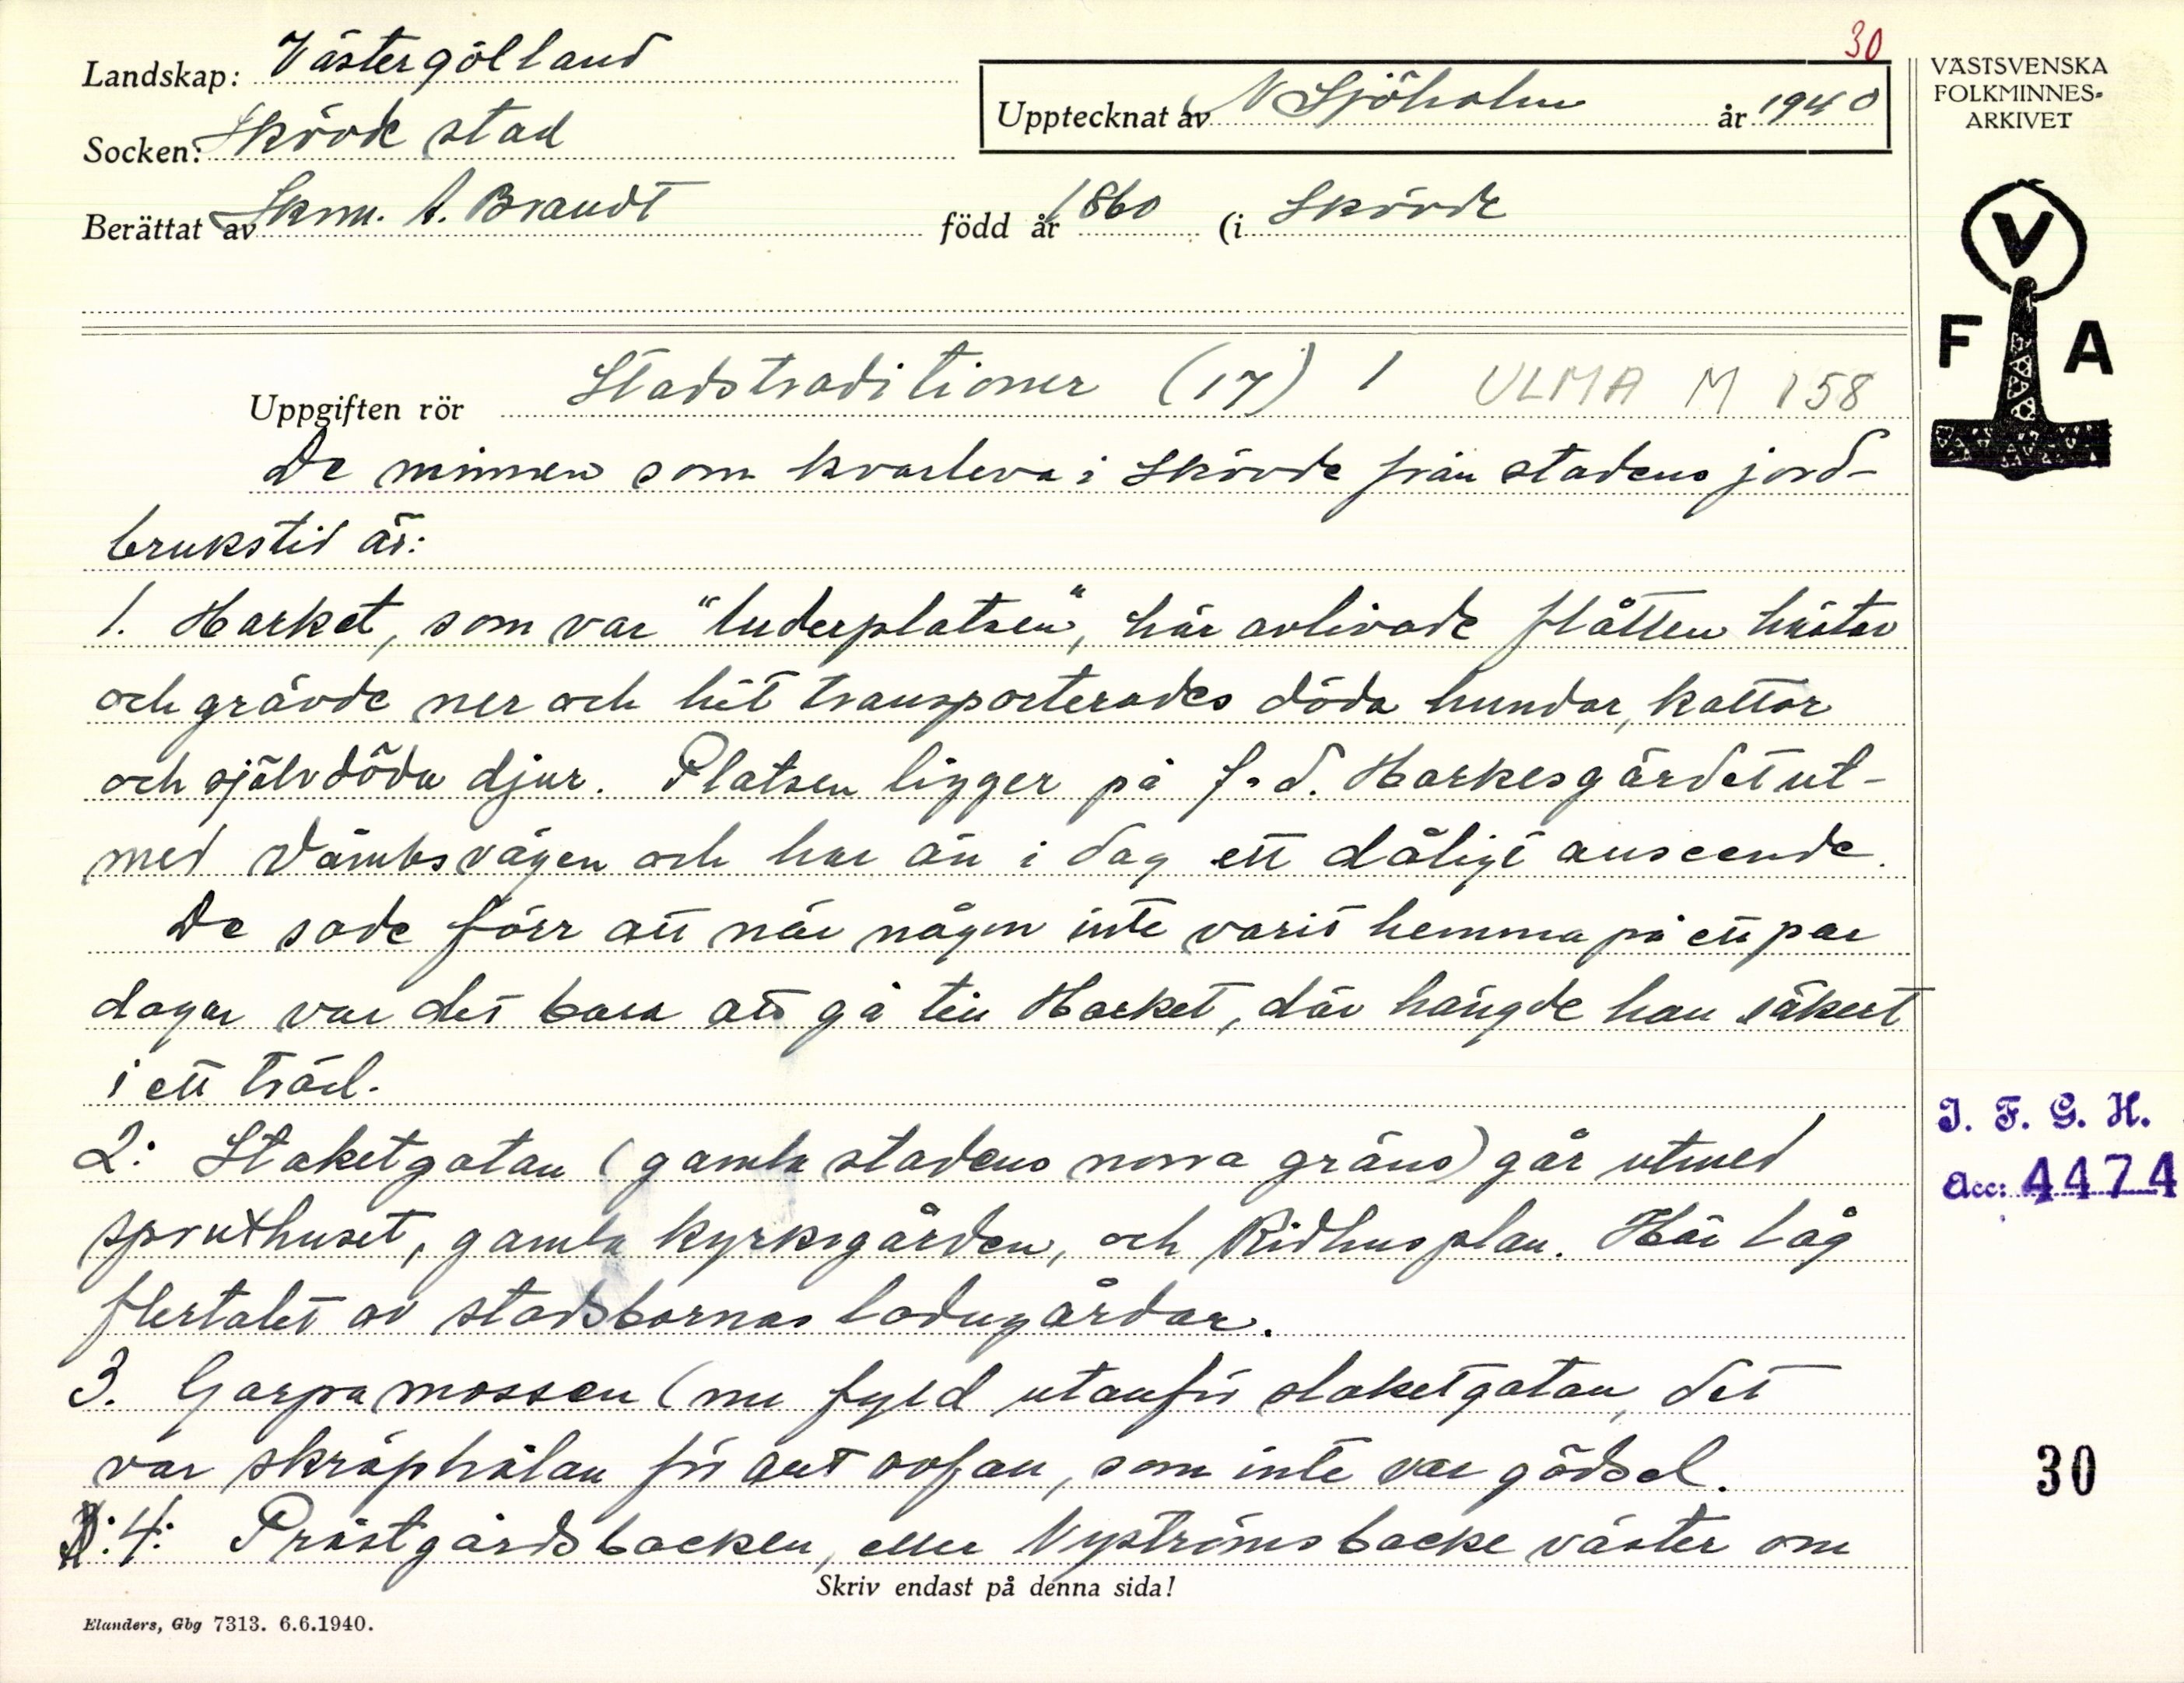 30
Landskap: Västergötland
Socken: Skövde stad
Upptecknat av N Sjöholm år 1940
Berättat av Skm. A. Brandt född år 1860 (i Skövde
VÄSTSVENSKA
FOLKMINNES-
ARKIVET
V
F A
Uppgiften rör Stadstraditioner (17) 1 ULMA M 158
De minnen som kvarleva i Skövde från stadens jord-
brukstid är:
1. Harket, som var "luderplatsen", här avlivade flåtten hästar
och grävde ner och hit transporterades döda hundar, kattor
och självdöda djur. Platsen ligger på f.d. Harkesgärdet ut-
med Våmbsvägen och har än i dag ett dåligt anseende.
De sade förr att när någon inte varit hemma på ett par
dagar var det bara att gå till Harket, där hängde han säkert
i ett träd.
2: Staketgatan (gamla stadens norra gräns) går utmed
spruthuset, gamla kyrkogården, och Ridhusplan. Här låg
flertalet av stadsbornas ladugårdar.
3. Garpamossen (nu fylld utanför staketgatan, det
var skräphålan för allt avfall, som inte var gödsel.
4: Prästgårdsbacken, eller Nyströms backe väster om
Skriv endast på denna sida!
Elanders, Gbg 7313. 6.6.1940.
I. F. G. H.
Acc: 4474
30